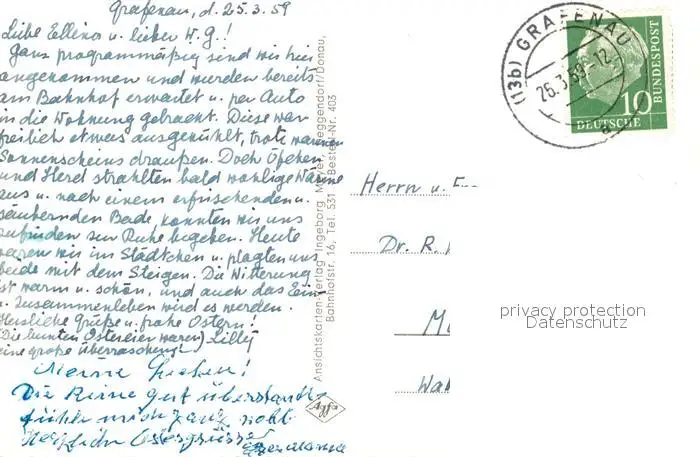 Grafenau, d. 25.3.59
Liebe Ellino u. lieber W. G.!
Ganz programmäßig sind wir hier
angekommen und wurden bereits
am Bahnhof erwartet u. per Auto
in die Wohnung gebracht. Diese war
freilich etwas ausgekühlt, trotz warmen
Sonnenscheins draußen. Doch Öfchen
und Herd strahlten bald wohlige Wärme
aus u. nach einem erfrischenden u.
säubernden Bade, konnten wir uns
zufrieden zur Ruhe begeben. Heute
waren wir im Städtchen u. plagten uns
beide mit dem Steigen. Die Witterung
ist warm u. schön, und auch das Ein-
u. Zusammenleben wird es werden.
Herzliche Grüße u. frohe Ostern!
(Die bunten Ostereier waren) Lilly
eine große Überraschung!
Meine Lieben!
Die Reise gut überstanden
fühle mich ganz wohl
Herzliche Ostergrüsse
Ansichtskarten-Verlag Ingeborg Meyer, Deggendorf/Donau,
Bahnhofstr. 16, Tel. 531 Bestell-Nr. 403
Agfa
(13b) GRAFENAU
26.3.59-12
a
10
DEUTSCHE
BUNDESPOST
Herrn u.
Dr. R.
privacy protection
Datenschutz